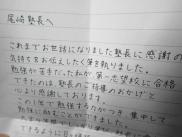 尾崎塾長へ
これまでお世話になりました塾長に感謝の
気持ちをお伝えしたく筆を執りました。
勉強が苦手だった私が、第一志望校に合格
できたのは塾長のご指導のおかげと
心より感謝しております。
この1年で勉強するたびつき、集中して